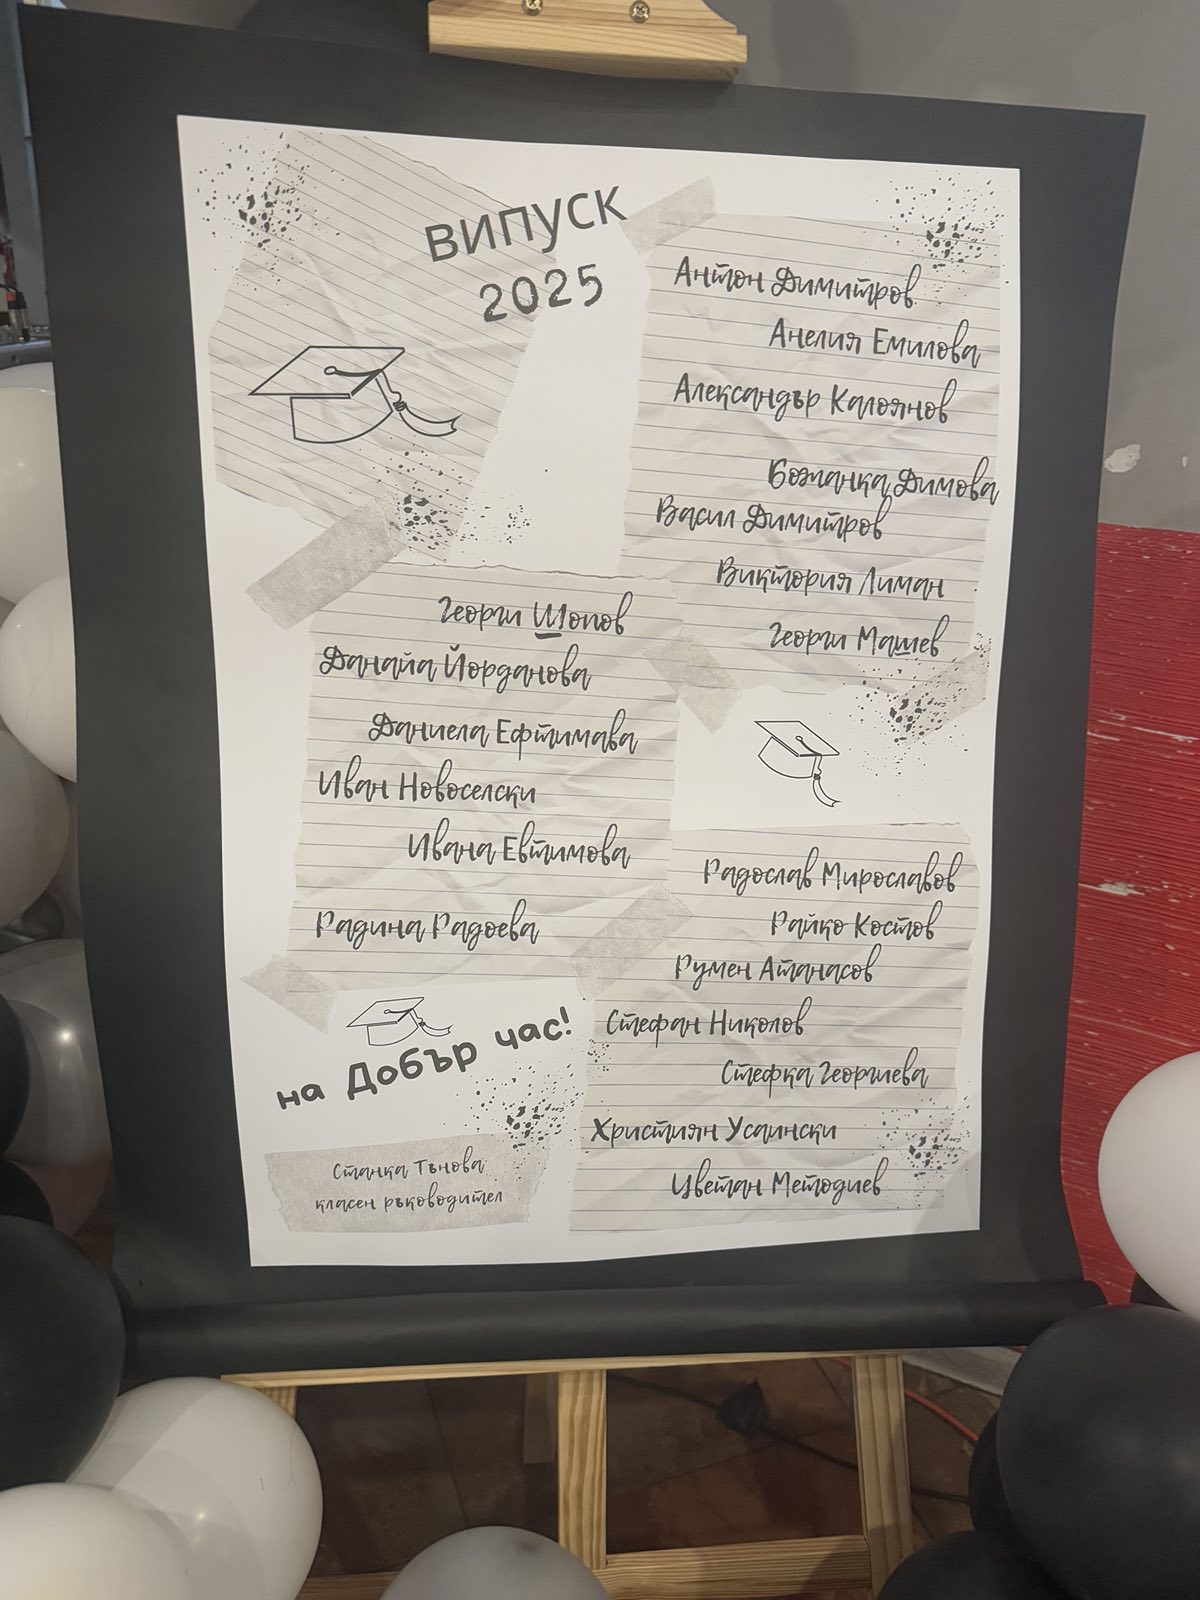 випуск
2025
Антон Димитров
Анелия Емилова
Александър Калоянов
Божанка Димова
Васил Димитров
Виктория Лиман
Георги Машев
Георги Шопов
Данайа Йорданова
Даниела Ефтимава
Иван Новоселски
Ивана Евтимова
Радина Радоева
Радослав Мирославов
Райко Костов
Румен Атанасов
Стефан Николов
Стефка Георгиева
Християн Усаински
Цветан Методиев
на Добър час!
Станка Тънова
класен ръководител